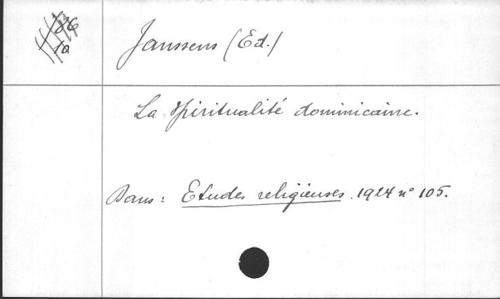 Janssens (Ed.)
La Spiritualité dominicaine.
Dans: Etudes religieuses. 1924 n° 105.